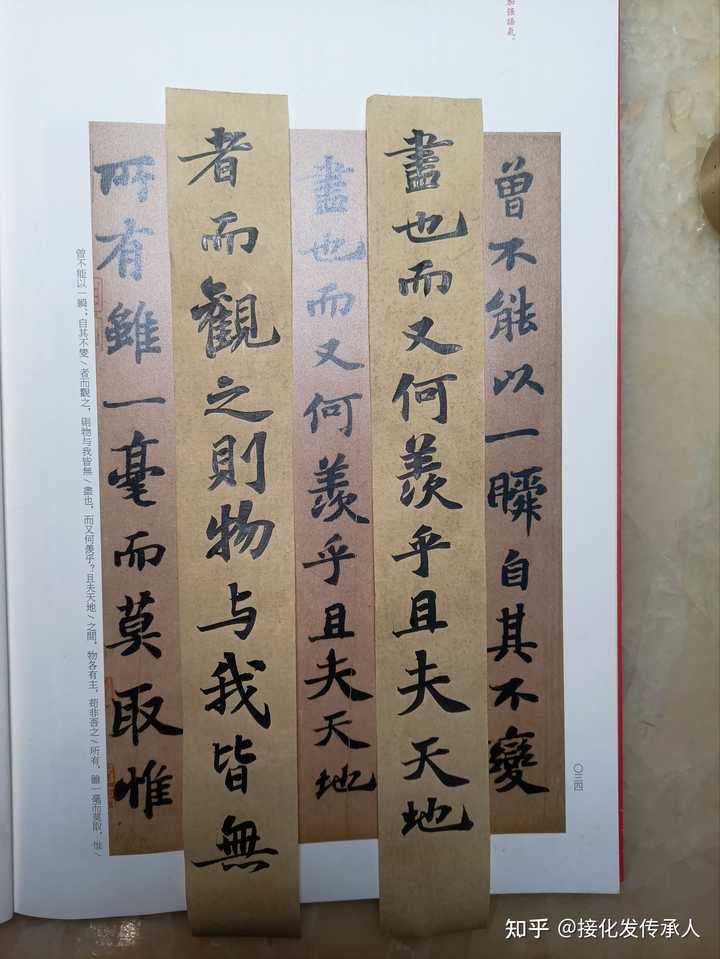 加強語氣。
曾不能以一瞬自其不變
盡也而又何羨乎且夫天地
盡也而又何羨乎且夫天地
者而觀之則物与我皆無
所有雖一毫而莫取惟
曾不能以一瞬；自其不變/者而觀之，則物与我皆無/盡也，而又何羨乎？且夫天地/之間，物各有主，苟非吾之/所有，雖一毫而莫取，惟/
〇三四
知乎 @接化发传承人